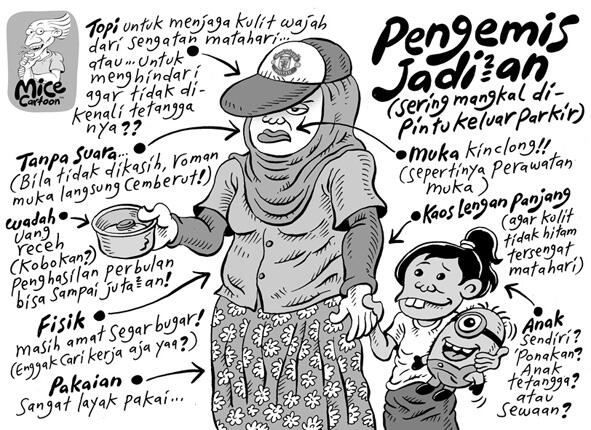 Mice
Cartoon
Topi untuk menjaga kulit wajah
dari sengatan matahari...
atau... Untuk
menghindari
agar tidak di-
kenali tetangga
nya??
Pengemis
Jadi2an
(sering mangkal di-
Pintu keluar Parkir)
Tanpa Suara...
(Bila tidak dikasih, roman
muka langsung cemberut!)
Muka kinclong!!
(sepertinya Perawatan
muka)
Wadah
uang
receh
(Kobokan?)
Penghasilan Perbulan
bisa sampai juta2an!
Kaos Lengan Panjang
(agar kulit
tidak hitam
tersengat
matahari)
Fisik
masih amat segar bugar!
(Enggak Cari kerja aja yaa?)
Pakaian
Sangat layak pakai...
Anak
sendiri?
Ponakan?
Anak
tetangga?
atau
Sewaan?